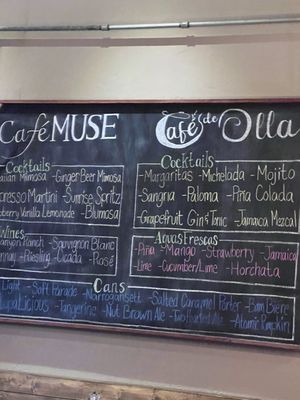 Café MUSE
Cocktails
Italian Mimosa - Ginger Beer Mimosa
Espresso Martini - Sunrise Spritz
Vanilla Lemonade - Blumosa
Wines
Ranch - Sauvignon Blanc
- Riesling - Cicada - Rosé
Café de Olla
Cocktails
- Margaritas - Michelada - Mojito
- Sangria - Paloma - Piña Colada
- Grapefruit Gin & Tonic - Jamaica Mezcal
Aguas Frescas
- Piña - Mango - Strawberry - Jamaica
- Lime - Cucumber/Lime - Horchata
Cans
Light - Soft Parade - Narragansett - Salted Caramel Porter - Bam Biere
LupaLicious - Tangerine - Nut Brown Ale - Two Hearted Ale - Atomic Pumpkin